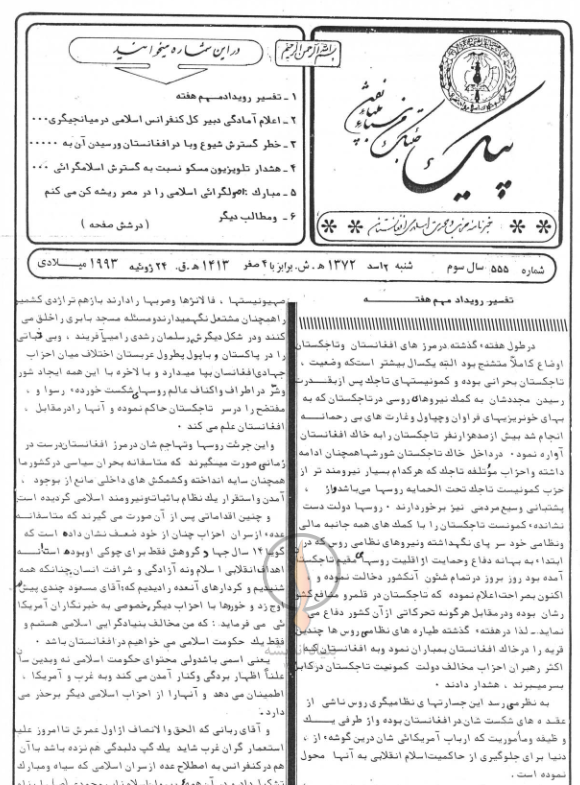 بسم الله الرحمن الرحیم
در این شماره میخوانید
۱ ـ تفسیر رویداد مهم هفته
۲ ـ اعلام آمادگی دبیر کل کنفرانس اسلامی در میانجیگری...
۳ ـ خطر گسترش شیوع وبا در افغانستان ورسیدن آن به .....
۴ ـ هشدار تلویزیون مسکو نسبت به گسترش اسلامگرائی ...
۵ ـ مبارك : اصولگرائی اسلامی را در مصر ریشه کن می کنم
۶ ـ ومطالب دیگر
( در شش صفحه )
پیک
خبرنامه
شماره ۵۵۵ سال سوم شنبه ۲ اسد ۱۳۷۲ ه . ش . برابر با ۴ صفر ۱۴۱۳ ه . ق . ۲۴ ژوئیه ۱۹۹۳ میلادی
تفسیر رویداد مهم هفتـــه
در طول هفته گذشته در مرز های افغانستان وتاجکستان
اوضاع کاملاً متشنج بود البته یکسال بیشتر است که وضعیت ،
تاجکستان بحرانی بوده و کمونیستهای تاجك پس از بقدرت
رسیدن مجددشان به کمك نیروهای روسی در تاجکستان که به
بهای خونریزیهای فراوان وچپاول وغارت های بی رحمانه
انجام شد بیش از صدهزار نفر تاجکستان را به خاك افغانستان
آواره نمود . در داخل خاك تاجکستان شورشها همچنان ادامه
داشته واحزاب مؤتلفه تاجك که هرکدام بسیار نیرومند تر از
حزب کمونیست تاجك تحت الحمایه روسها میباشد از ،
پشتبانی وسیع مردمی نیز برخوردارند . روسها دولت دست
نشانده کمونست تاجکستان را با کمك های همه جانبه مالی
ونظامی خود سر پای نگهداشته ونیروهای نظامی روس که در
ابتدا به بهانه دفاع وحمایت از اقلیت روسهای مقیم تاجکستان
آمده بود روز بروز در تمام شئون آنکشور دخالت نموده و ،
اکنون بصراحت اعلام نموده که تاجکستان در قلمرو منافع کشور
شان بوده ودر مقابل هرگونه تحرکاتی از آن کشور دفاع می
نماید . لذا در هفته گذشته طیاره های نظامی روس ها چندین
قریه را در خاك افغانستان بمباران نمود وبه افغانستان که
اکثر رهبران احزاب مخالف دولت کمونیت تاجکستان در کابل
بسر میبرند ، هشدار دادند .
به نظر می رسد این جسارتهای نظامیگری روس ناشی از
عقده های شکست شان در افغانستان بوده واز طرفی یــك
وظیفه ومأموریت که ارباب آمریکائی شان درین گوشه از ،
دنیا برای جلوگیری از حاکمیت اسلام انقلابی به آنها محول
نموده است .
صهیونیستها ، فالانژها وصربها را دارند باز هم تراژدی کشمیر
را همچنان مشتعل نگهمیدارند مسئله مسجد بابری را خلق می
کنند ودر شکل دیگرش سلمان رشدی را می‌آفرینند ، وبی ثباتی
را در پاکستان و با پول پطرول عربستان اختلاف میان احزاب
جهادی افغانستان بپا میدارد و بالاخره با این همه ایجاد شور
وشر در اطراف واکناف عالم روسهای شکست خورده ، رسوا و ،
مفتضح را در سر تاجکستان حاکم نموده و آنها را در مقابل ،
افغانستان علم می کند .
واین جرئت روسها وتهاجم شان در مرز افغانستان درست در
زمانی صورت میگیرند که متأسفانه بحران سیاسی در کشور ما
همچنان سایه انداخته وکشمکش های داخلی مانع از بوجود ،
آمدن واستقرار یك نظام باثبات ونیرومند اسلامی گردیده است
و چنین اقداماتی پس از آن صورت می گیرند که متاسفانــه
عده از سران احزاب چنان از خود ضعف نشان داده است که
گویا ۱۴ سال جهاد وگروهش فقط برای چوکی او بوده است نه
اهداف انقلابی اسلام ونه آزادگی و شرافت انسان چنانکه همه
شنیدیم و کردارهای آنعده را دیدیم که آقای مسعود چندی پیش
اوج زد و خوردها با احزاب دیگر خصوصی به خبرنگاران آمریکا
ئی می فرماید : که من مخالف بنیادگرایی اسلامی هستم و
فقط یك حکومت اسلامی می خواهیم در افغانستان باشد .
یعنی اسمی باشد ولی محتوای حکومت اسلامی نه وبدین سان
علناً اظهار بردگی وکنار آمدن می کند وبه غرب و آمریکا ،
اطمینان می دهد و آنها را از احزاب اسلامی دیگر برحذر می
دارد .
و آقای ربانی که الحق والانصاف از اول عمرش تا امروز علیه
استعمار گران غرب شاید یك گپ دلبدگی هم نزده باشد با آن
هم در کنفرانس به اصطلاح عده از سران اسلامی که سیاه ومبارك